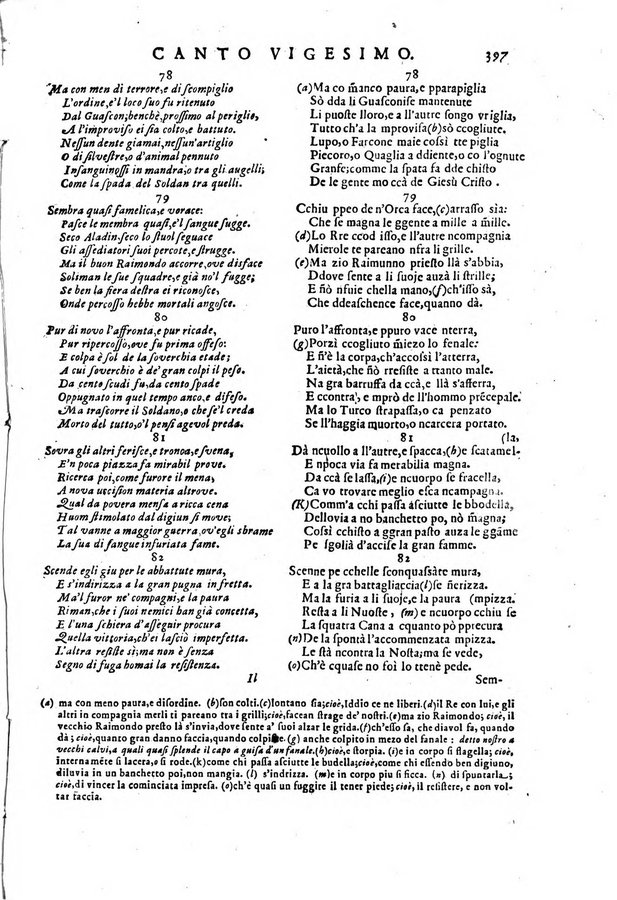 CANTO VIGESIMO. 397
78
Ma con men di terrore, e di scompiglio
L'ordine, e'l loco suo fu ritenuto
Dal Guascon; benchè, prossimo al periglio,
A l'improviso ei sia colto, e battuto.
Nessun dente giamai, nessun'artiglio
O di silvestre, o d'animal pennuto
Insanguinossi in mandra, o tra gli augelli;
Come la spada del Soldan tra quelli.
79
Sembra quasi famelica, e vorace:
Pasce le membra quasi, e'l sangue sugge.
Seco Aladin, seco lo stuol seguace
Gli assediatori suoi percote, e strugge.
Ma il buon Raimondo accorre, ove disface
Soliman le sue squadre, e già no'l fugge;
Se ben la fiera destra ei riconosce,
Onde percosso hebbe mortali angosce.
80
Pur di novo l'affronta, e pur ricade,
Pur ripercosso, ove fu prima offeso:
E colpa è sol de la soverchia etade;
A cui soverchio è de' gran colpi il peso.
Da cento scudi fu, da cento spade
Oppugnato in quel tempo anco, e difeso.
Ma trascorre il Soldano, o che se'l creda
Morto del tutto, o'l pensi agevol preda.
81
Sovra gli altri ferisce, e tronca, e svena,
E'n poca piazza fa mirabil prove.
Ricerca poi, come furore il mena,
A nova uccision materia altrove.
Qual da povera mensa a ricca cena
Huom stimolato dal digiun si move;
Tal vanne a maggior guerra, ov'egli sbrame
La sua di sangue infuriata fame.
82
Scende egli giu per le abbattute mura,
E s'indirizza a la gran pugna in fretta.
Ma'l furor ne' compagni, e la paura
Riman, che i suoi nemici han già concetta,
E l'una schiera d'asseguir procura
Quella vittoria, ch'ei lasciò imperfetta.
L'altra resiste sì; ma non è senza
Segno di fuga homai la resistenza.
Il
78
(a) Ma co māco paura, e pparapiglia
Sò dda li Guasconise mantenute
Li puoste lloro, e a ll'autre songo vriglia,
Tutto ch'a la mprovisa (b) sò ccogliute.
Lupo, o Farcone maie cossì tte piglia
Piccoro, o Quaglia a ddiente, o co l'ognute
Granfe; comme la spata fa dde chisto
De le gente mo ccà de Giesù Cristo.
79
Cchiu ppeo de n'Orca face, (c) arrasso sia:
Che se magna le ggente a mille a mille.
(d) Lo Rre ccod isso, e ll'autre ncompagnia
Mierole te pareano nfra li grille.
(e) Ma zio Raimunno priesto llà s'abbia,
Ddove sente a li suoje auzà li strille;
E ñò nfuie chella mano, (f) ch'isso sà,
Che ddeaschence face, quanno dà.
80
Puro l'affronta, e ppuro vace nterra,
(g) Porzì ccogliuto m̄iezo lo fenale:
E ñ'è la corpa, ch'accossì l'atterra,
L'aietà, che ñò rresiste a tranto male.
Na gra barruffa da ccà, e llà s'afferra,
E ccontrà, e mprò de l'hommo prēcepale.
Ma lo Turco strapassa, o ca penzato
Se ll'haggia muorto, o ncarcera portato.
81
Dà ncuollo a ll'autre, e spacca, (h) e scatamel- (la,
E npoca via fa merabilia magna.
Da ccà se lassa, (i) e ncuorpo se fracella,
Ca vo trovare meglio esca ncampagna.
(K) Comm'a cchi passa asciutte le bbodella,
Dellovia a no banchetto po, nò m̄agna;
Cossì cchisto a ggran pasto auza le ggāme
Pe sgolià d'accise la gran famme.
82
Scenne pe cchelle sconquassāte mura,
E a la gra battagliaccia (l) se ñerizza.
Ma la furia a li suoje, e la paura (mpizza.
Resta a li Nuoste, (m) e ncuorpo cchiu se
La squatra Cana a cquanto pò pprecura
(n) De la spontà l'accommenzata mpizza.
Le stà ncontra la Nosta; ma se vedo,
(o) Ch'è cquase no foì lo ttenè ppede.
Sem-
(a) ma con meno paura, e disordine. (b) son colti. (c) lontano sia; cioè, Iddio ce ne liberi. (d) il Re con lui, e gli
altri in compagnia merli ti pareano tra i grilli; cioè, facean strage de' nostri. (e) ma zio Raimondo; cioè, il
vecchio Raimondo presto là s'invia, dove sente a' suoi alzar le grida. (f) ch'esso sa, che diavol fa, quando
dà; cioè, quanto gran danno faccia, quando colpisce. (g) anche colpito in mezo del fanale: detto nostro a
vecchi calvi, a quali quasi splende il capo a guisa d'un fanale. (h) cioè, e storpia. (i) e in corpo si flagella; cioè,
internamēte si lacera, o si rode. (k) come chi passa asciutte le budella; cioè, come chi essendo ben digiuno,
diluvia in un banchetto poi, non mangia. (l) s'indrizza. (m) e in corpo piu si ficca. (n) di spuntarla;
cioè, di vincer la cominciata impresa. (o) ch'è quasi un fuggire il tener piede; cioè, il resistere, e non vol-
tar faccia.